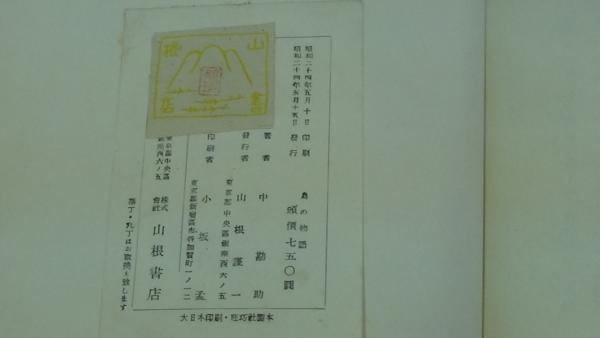 昭和二十四年五月十日 印刷
昭和二十四年五月十五日 發行
鳥の物語
頒價七五〇圓
著者 中勘助
發行者 山根謹一
東京都中央區銀座西六ノ五
印刷者 小坂孟
東京都新宿區市谷加賀町一ノ一二
東京都中央區
銀座西六ノ五
株式
會社 山根書店
落丁・乱丁はお取換え致します
大日本印刷・
山根
書店